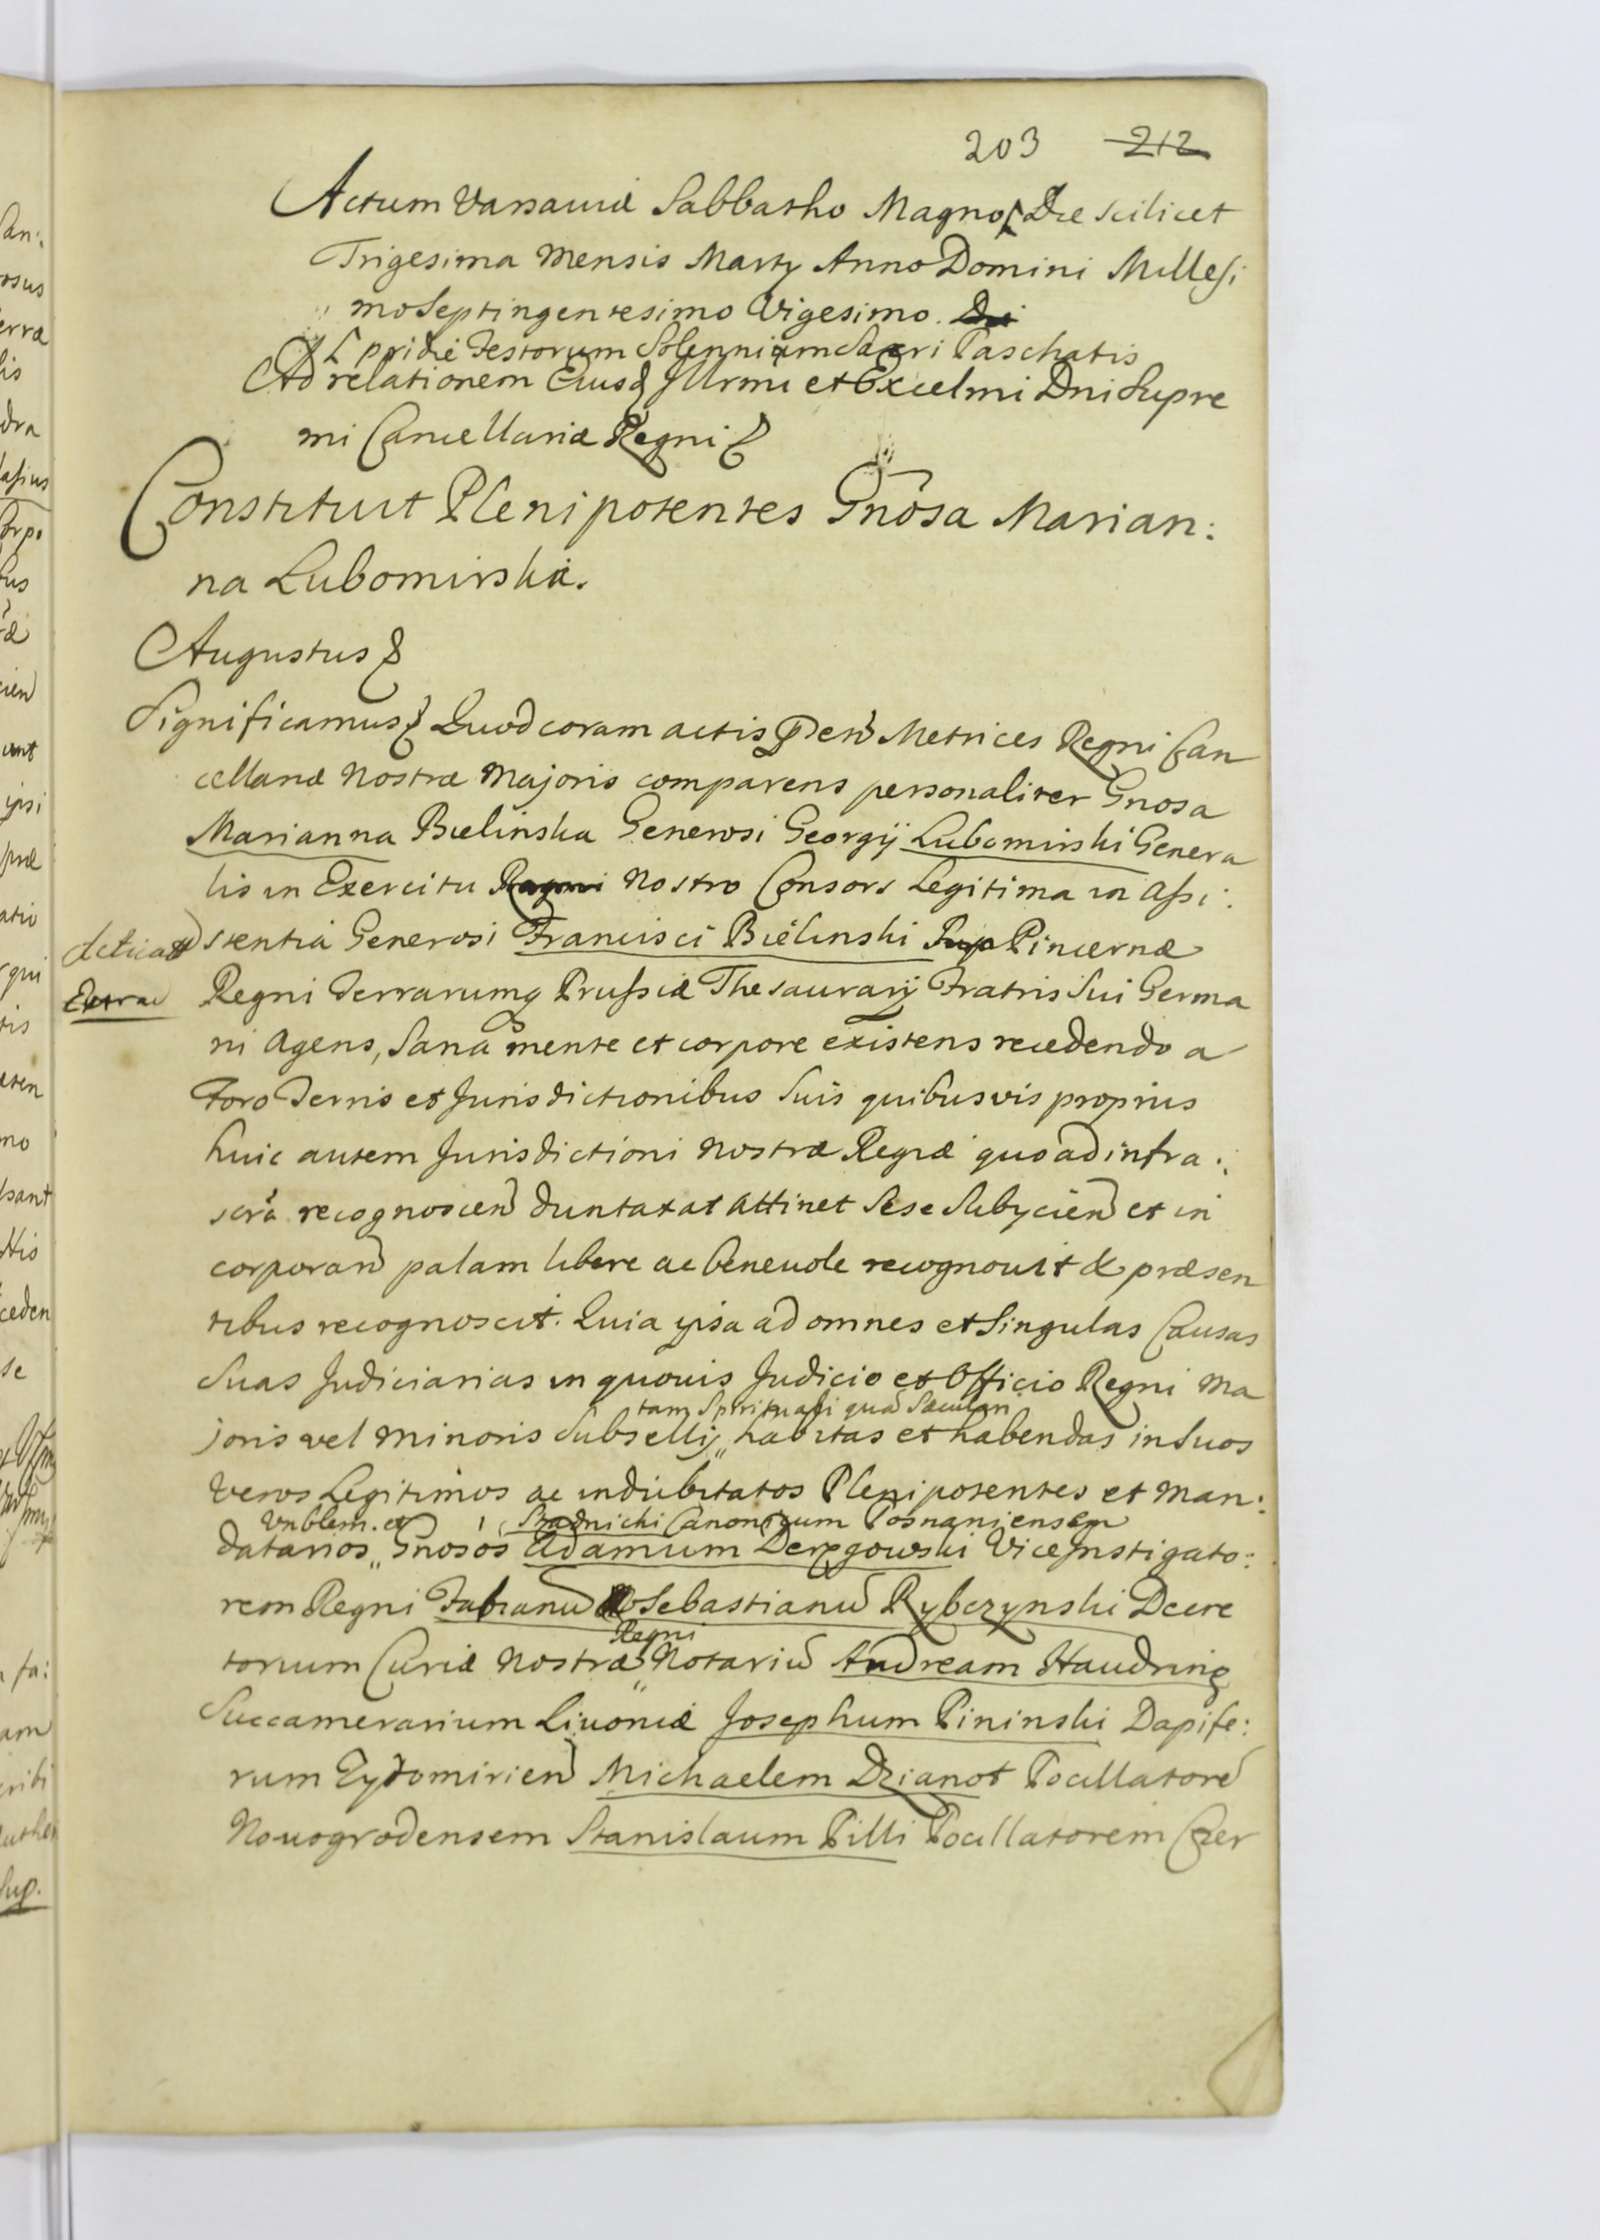 203 212
Actum Varsaviæ Sabbatho Magno Die scilicet
Trigesima Mensis Martij Anno Domini Millesi
mo Septingentesimo Vigesimo. Dni
pridie Festorum Solennium Sacri Paschatis
Ad relationem Eiusd Illrmi et Excelmi Dni Supre
mi Cancellariæ Regni
Constituit Plenipotentes Gnosa Marian:
na Lubomirska.
Augustus
Significamus Quod coram actis Metrices Regni Can
cellariæ Nostræ Majoris comparens personaliter Gnosa
Marianna Bielinska Generosi Georgij Lubomirski Genera
lis in Exercitu Regni Nostro Consors Legitima in Assi:
stentia Generosi Francisci Bielinski Sup Pincernæ
Regni Terrarumq Prussiæ Thesaurarij Fratris Sui Germa
Extrac
ni Agens, Sana mente et corpore existens recedendo a
Foro Terris et Jurisdictionibus Suis quibusvis proprius
huic autem Jurisdictioni Nostræ Regiæ quo ad infra:
scra recognoscen duntaxat attinet Sese Subijcien et in
corporan palam libere ac benevole recognovit & præsen
tibus recognoscit. Quia ipsa ad omnes et Singulas Causas
Suas Judiciarias in quovis Judicio et Officio Regni Ma
tam Spirituali qua Sæculari
joris vel Minoris Subsellij habitas et habendas in Suos
Veros Legitimos ac indubitatos Plenipotentes et Man:
Vnblem. et Stadnicki Canonicum Posnaniensem
datarios Gnosos Adamum Derpgowski Vice Instigato:
rem Regni Fabianu Sebastianu Rybczynski Decre
Regni
torium Curiæ Nostræ Notariu Andream Haudring
Succamerarium Livoniæ Josephum Pininski Dapife:
rum Zytomirien Michaelem Dzianot Pocillatore
Novogrodensem Stanislaum Pilli Pocillatorem Czer